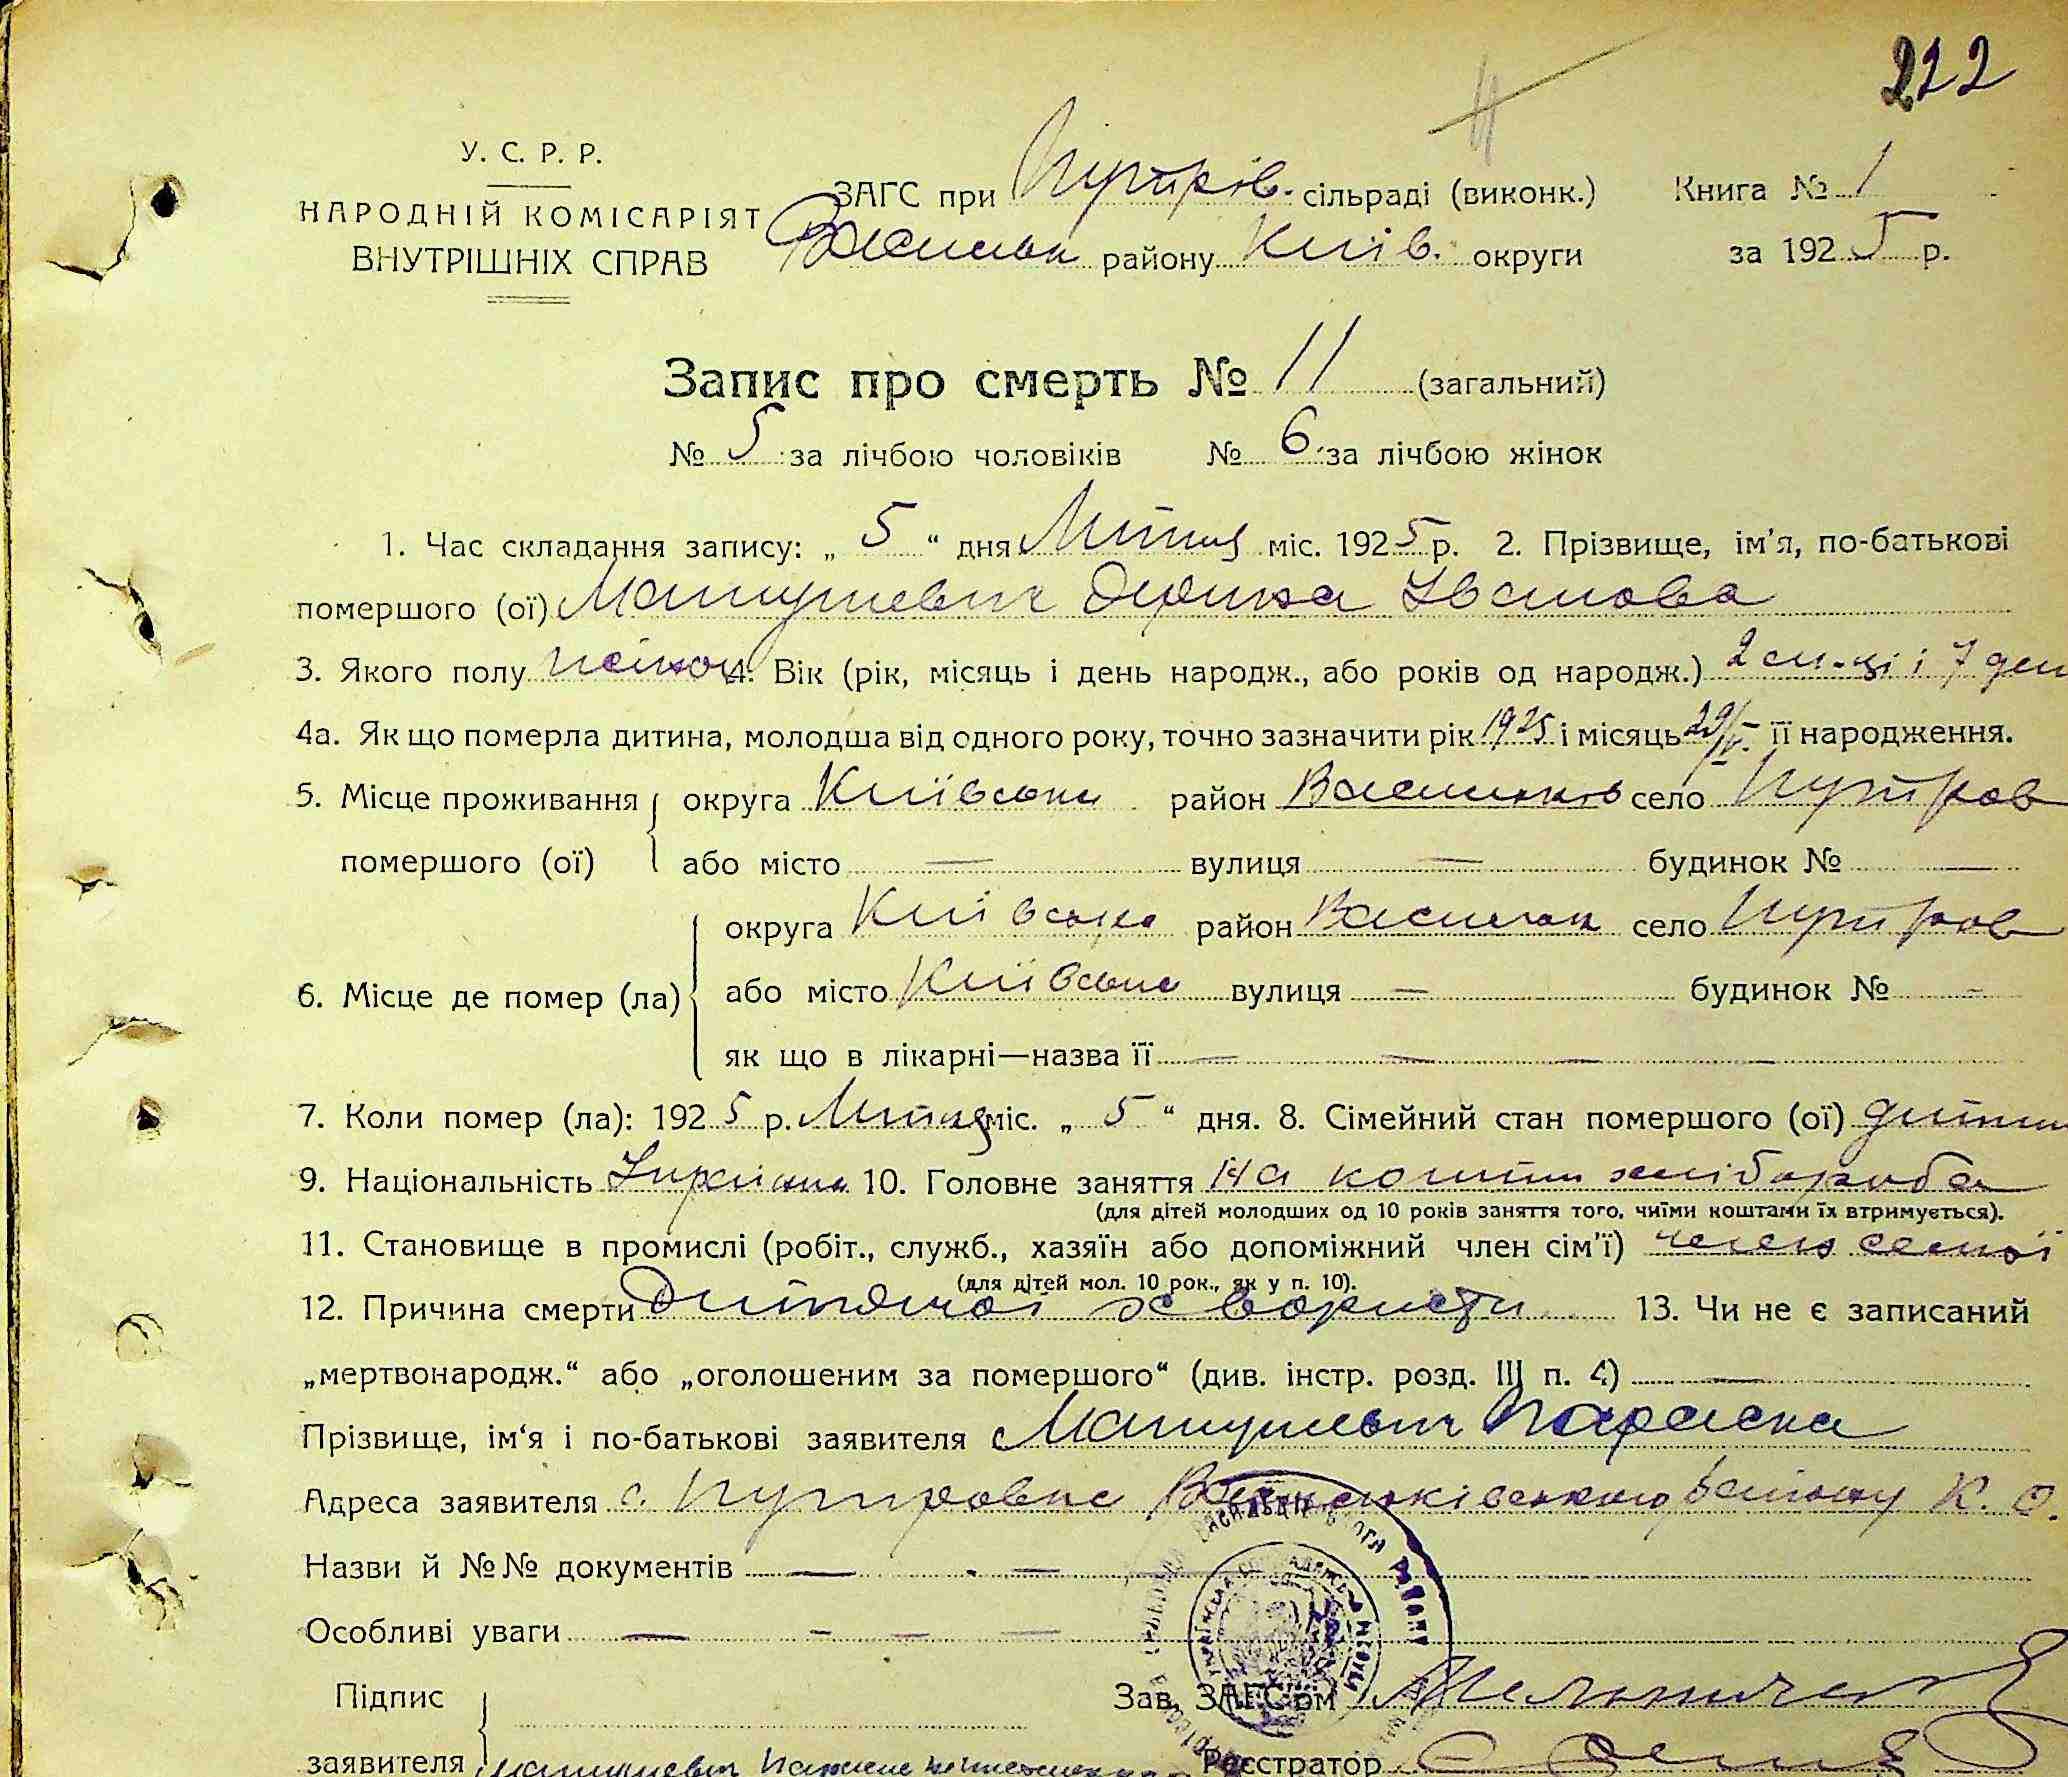 222
У. С. Р. Р.
НАРОДНІЙ КОМІСАРІЯТ
ВНУТРІШНІХ СПРАВ
ЗАГС при Путрів. сільраді (виконк.) Книга № 1
Васильк району Київ. округи за 1925 р.
Запис про смерть № 11 (загальний)
№ 5 за лічбою чоловіків № 6 за лічбою жінок
1. Час складання запису: „ 5 “ дня Липня міс. 1925 р. 2. Прізвище, ім'я, по-батькові
помершого (ої) Матушевич Іванова
3. Якого полу жіноч 4. Вік (рік, місяць і день народж., або років од народж.) 2 м-ці і 7 ден
4а. Як що померла дитина, молодша від одного року, точно зазначити рік 1925 і місяць її народження.
5. Місце проживання округа Київська район Васильків село Путров
помершого (ої) або місто — вулиця — будинок № —
6. Місце де помер (ла) округа Київська район Васильк село Путров
або місто Київська вулиця — будинок № —
як що в лікарні—назва її — — — —
7. Коли помер (ла): 1925 р. Липня міс. „ 5 “ дня. 8. Сімейний стан помершого (ої) дитина
9. Національність 10. Головне заняття на кошти хлібороба
(для дітей молодших од 10 років заняття того, чиїми коштами їх втримується).
11. Становище в промислі (робіт., служб., хазяїн або допоміжний член сім'ї) член семьї
(для дітей мол. 10 рок., як у п. 10).
12. Причина смерти Дитячої хворости 13. Чи не є записаний
„мертвонародж.“ або „оголошеним за помершого“ (див. інстр. розд. III п. 4) —
Прізвище, ім'я і по-батькові заявителя Матушевич Параска
Адреса заявителя с. Путровка Васильківського району К. О.
Назви й №№ документів — - —
Особливі уваги — - — —
Підпис
заявителя Матушевич Параска
Зав. ЗАГС'ом
Реєстратор